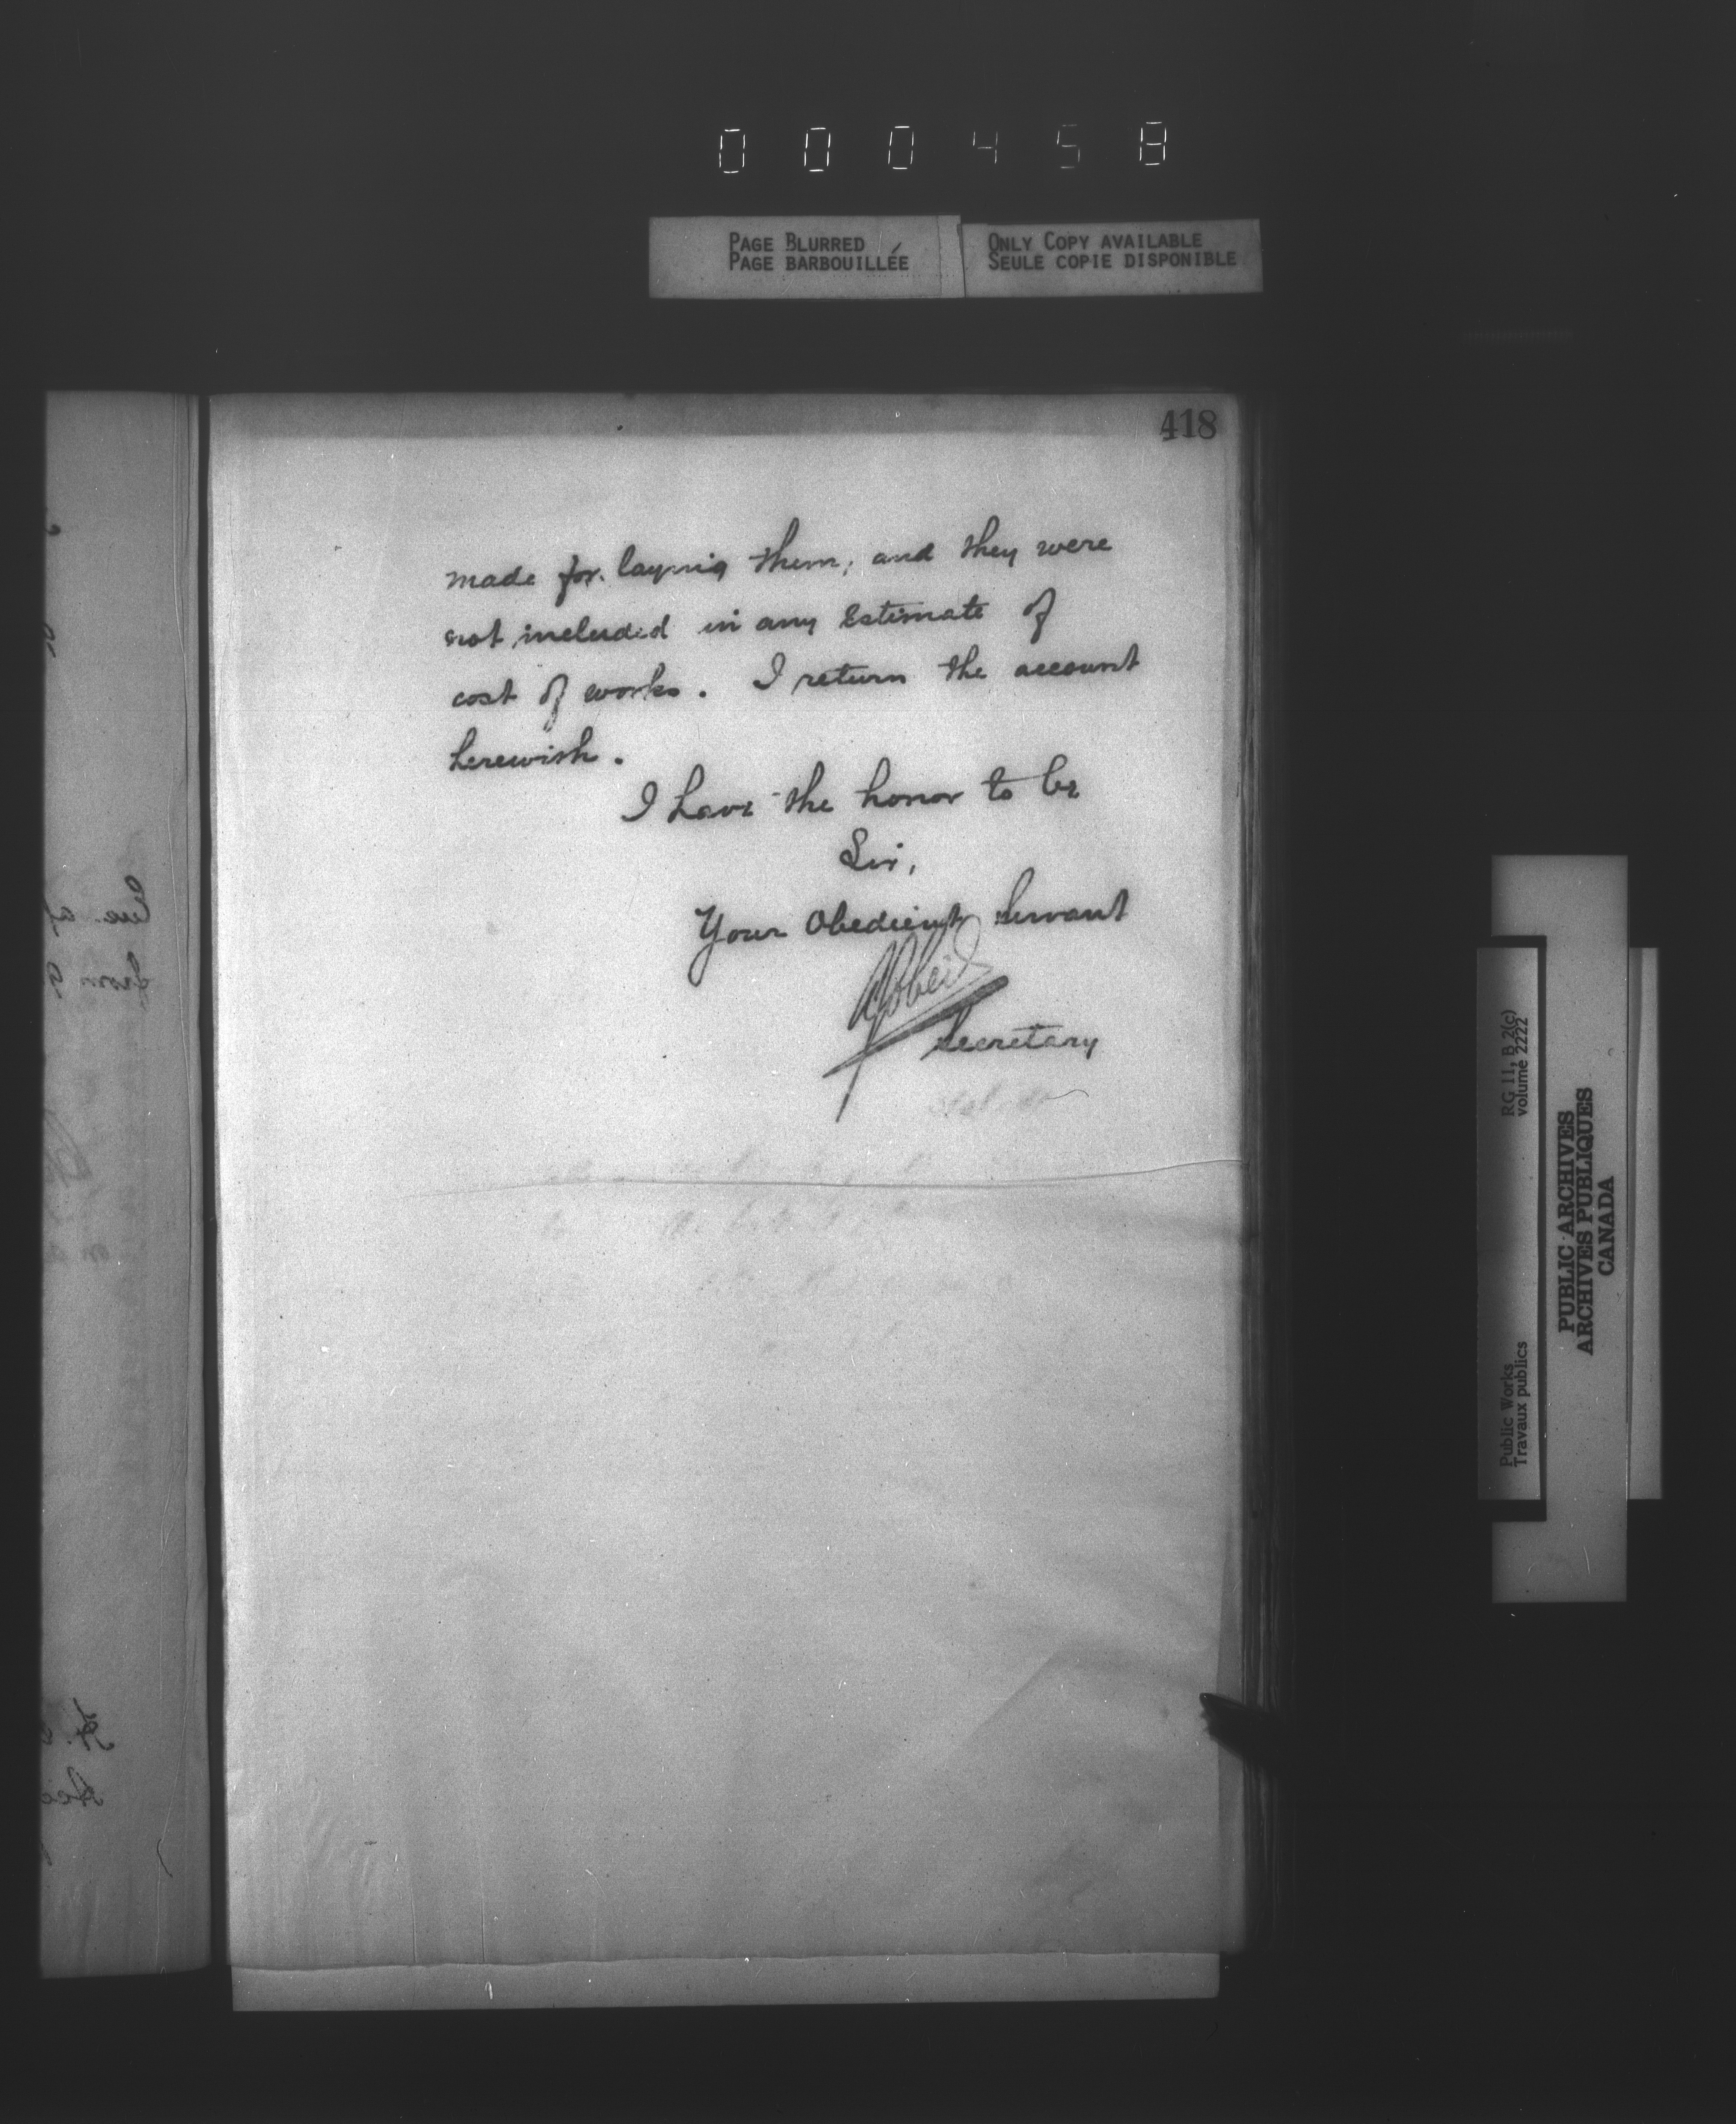 000458
PAGE BLURRED
PAGE BARBOUILLÉE
ONLY COPY AVAILABLE
SEULE COPIE DISPONIBLE
418
made for laying them, and they were
not included in any Estimate of
cost of works. I return the account
herewith.
I have the honor to be
Sir,
Your Obedient Servant
Secretary
RG 11, B 2(c)
volume 2222
Public Works
Travaux publics
PUBLIC ARCHIVES
ARCHIVES PUBLIQUES
CANADA